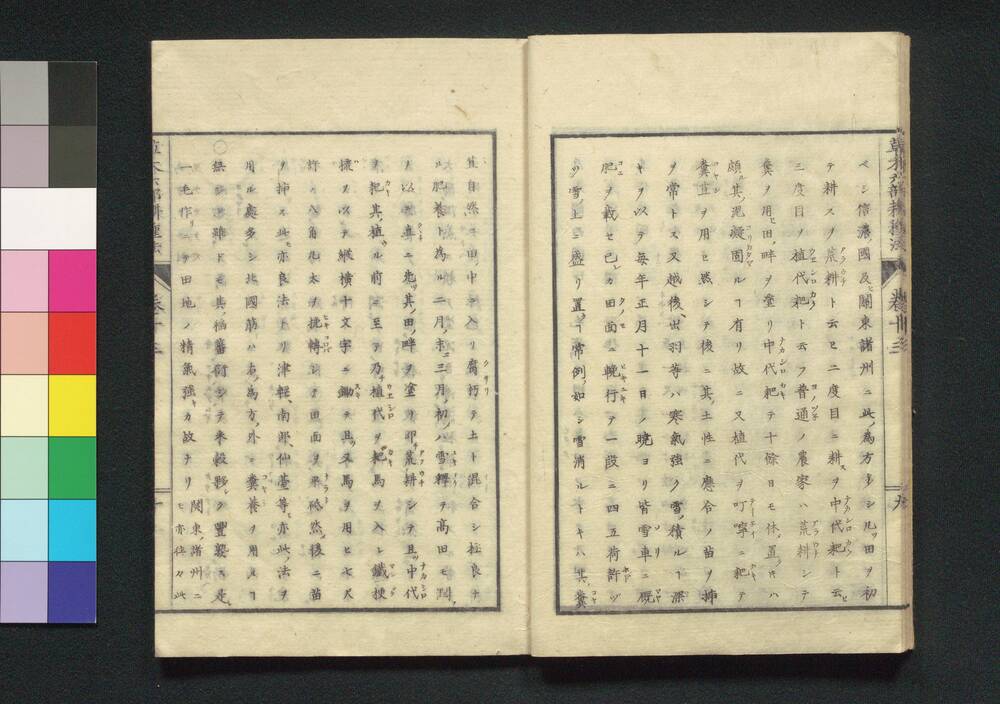 ベシ信濃國及ヒ關東諸州ニ此ノ為方多シ凡ソ田ヲ初
テ耕スヲ荒耕ト云ヒ二度目ニ耕スヲ中代耙ト云ヒ
三度目ヲ植代耙ト云フ普通ノ農家ハ荒耕シテ
糞ヲ用ヒ田ノ畔ヲ塗リ中代耙テ十餘日モ休メ置トキハ
頗ル其ノ泥凝固ルヿ有リ故ニ又植代ヲ叮嚀ニ耙テ
糞苴ヲ用ヒ然シテ後ニ其ノ土性ニ應合ノ苗ヲ挿
ヲ常トス又越後、出羽等ハ寒氣強ク雪ノ積ルヿ深
キヲ以テ毎年正月十一日ノ曉ヨリ皆雪車ニ厩
肥ヲ載セ己カ田面ニ輓行テ一段ニ四五荷許ツヽ
ノ雪ノ上ニ盛リ置クヿ常例ノ如シ雪消ルトキハ其ノ糞
苴自然ニ田ノ中ニ入リ腐朽テ土ト混合シ極良ナ
ル肥養ト為ル二月ノ末三月ノ初ハ雪釋テ高田モ
ヲ以テ直ニ先ツ其ノ田ノ畔ヲ塗リ即チ荒耕シテ且ツ中代
ヲ耙キ其ノ植ル前ニ至テ乃チ植代ヲ耙キ馬ヲ入レ鐵
擽ヲ以テ縦横十文字ニ鋤キ且ツ又馬ヲ用ヒ七尺
許ノ八角丸太ヲ挽轉シテ田面ヲ平シ然後ニ苗
ヲ挿ス此モ亦良法ナリ津輕、南部、仙臺等モ亦此ノ法ヲ
用ル處多シ北國筋ハ右ノ為方ノ外ニ糞養ヲ用ルヿ
無シト雖ドモ其ノ稲蕃衍シテ米穀夥ク豐饒ス是レ
一毛作リニテ田地ノ精氣強キカ故ナリ
關東ノ諸州ニ
モ亦往々此
草木六部耕種法
卷十三
九